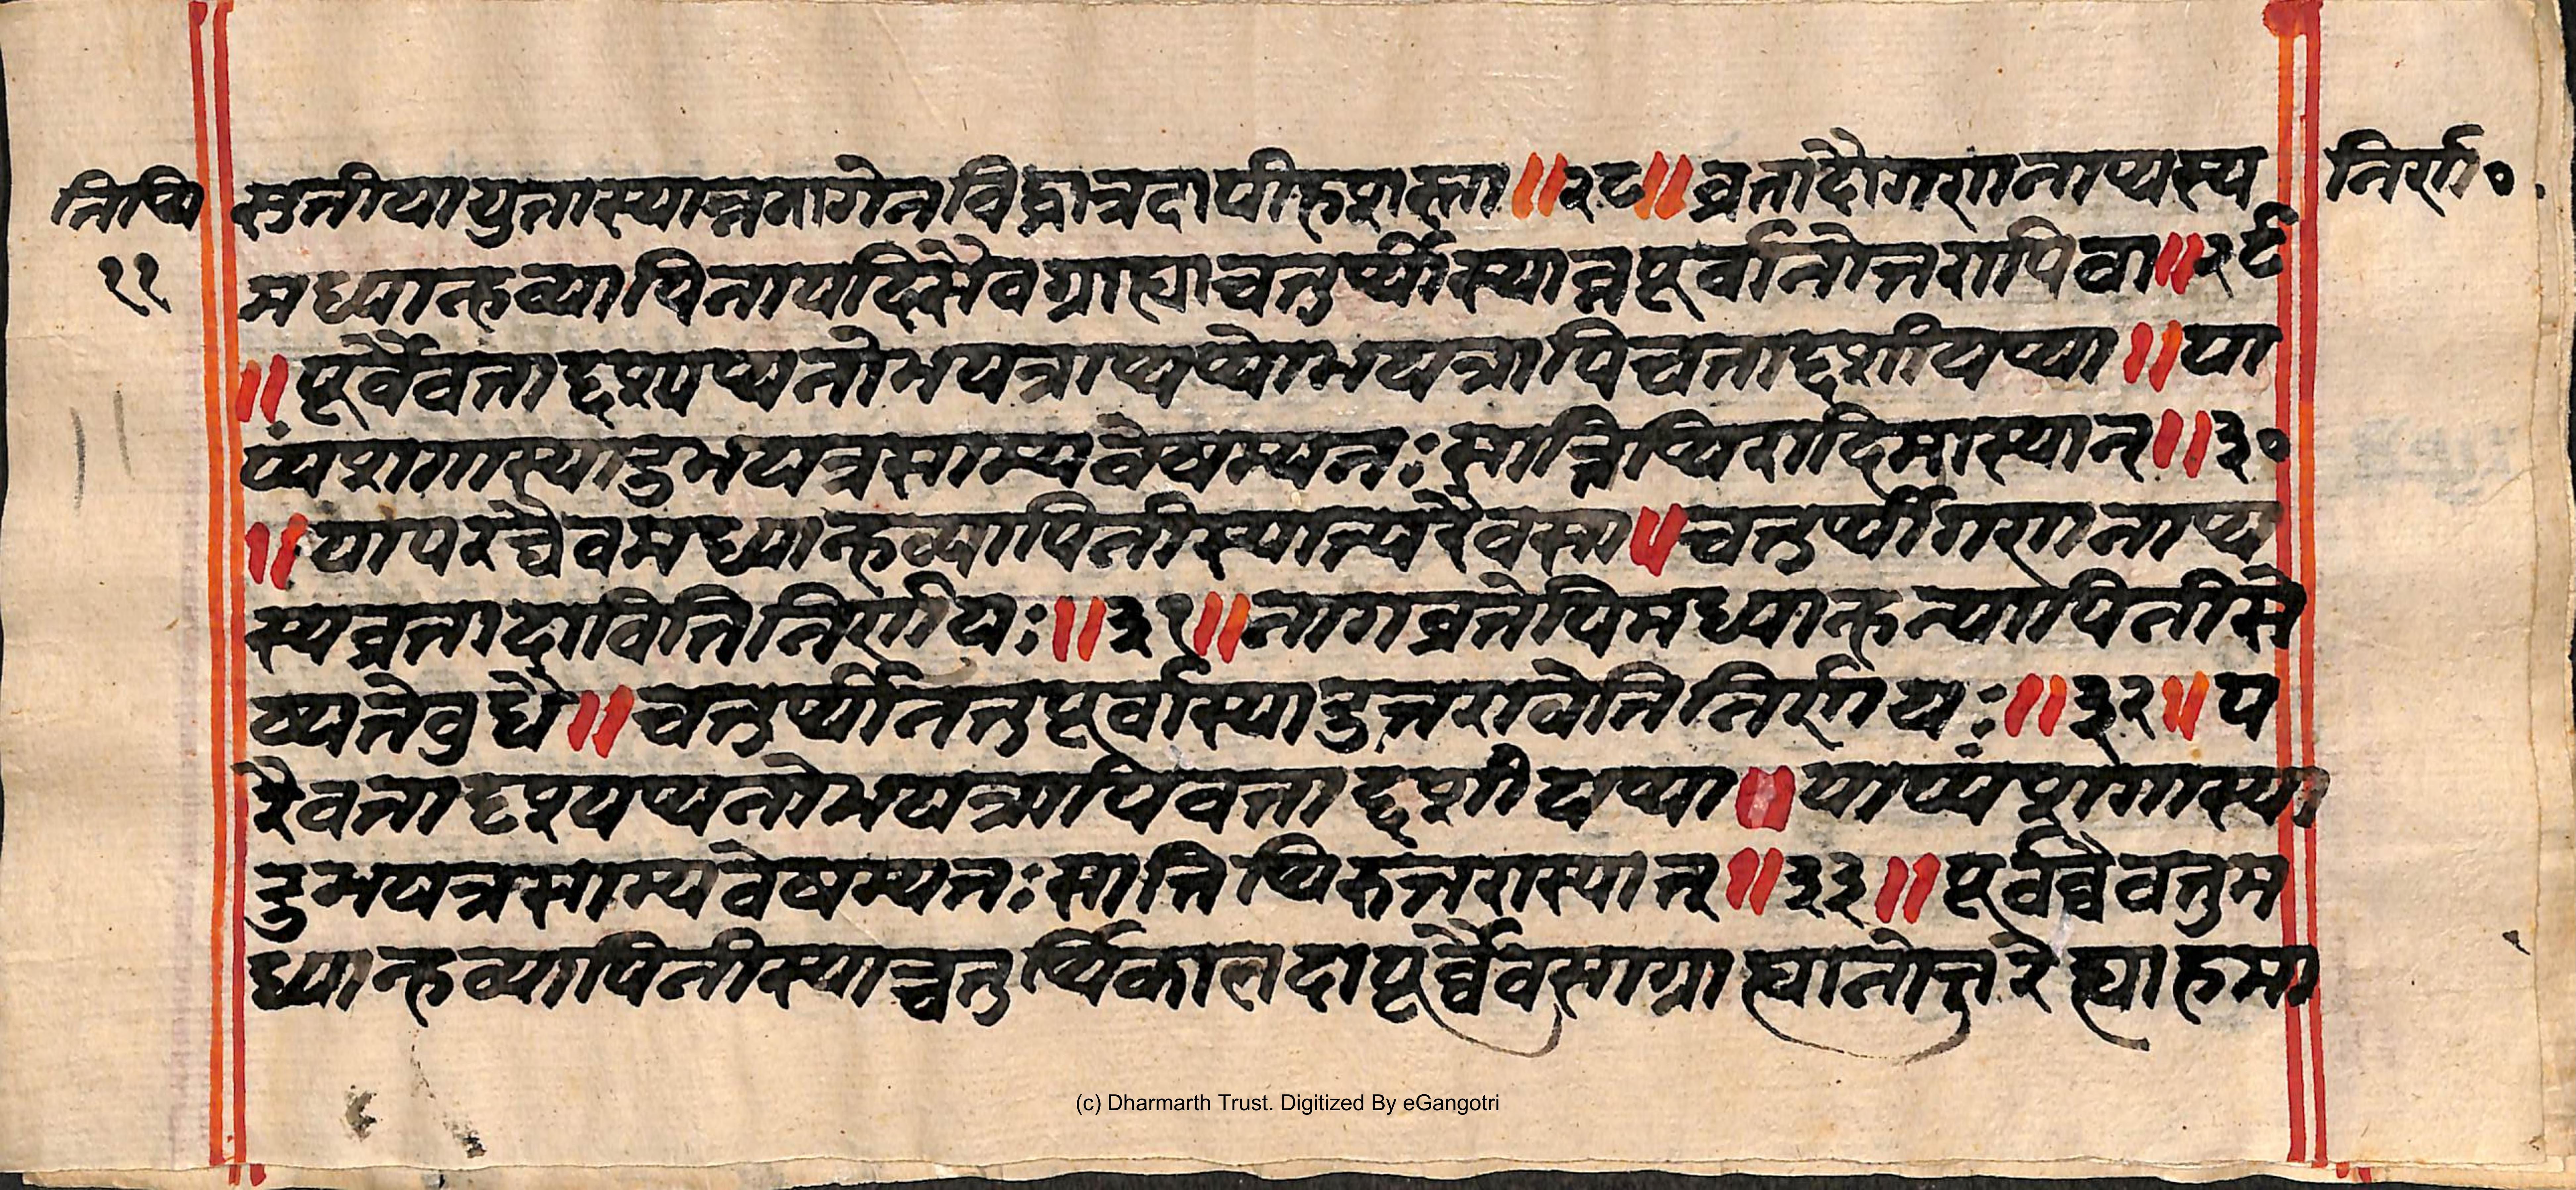 तिथि
११
निर्ण०
स्तृतीया युता स्यान्न नागेन विद्धा न्रदापीह शस्ता ॥ २८ ॥ व्रतादौ गणनाथस्य
मध्यान्हव्यापिनी यदि सैव ग्राह्या चतुर्थी स्यान्न पूर्वा नोत्तरापि वा ॥ २९
॥ पूर्वैव तादृश्यथ नोभयत्राप्यथोभयत्रापि च तादृशी यथा ॥ या
थांशगा स्यादुभयत्र साम्यवैषम्यतः सा तिथिरादिमा स्यात् ॥ ३०
॥ या परत्रैव मध्यान्हव्यापिनी स्यात्परैव सा ॥ चतुर्थी गणनाथ
स्य व्रतादाविति निर्णयः ॥ ३१ ॥ नागव्रतेपि मध्यान्हव्यापिनी से
व्यते बुधै ॥ चतुर्थी तु पूर्वा स्यादुत्तरा वेति निर्णयः ॥ ३२ ॥ प
रैव तादृश्यथ नोभयत्रापि व तादृशी यथा ॥ याथांशगा स्या
दुभयत्र साम्यवैषम्यतः सा तिथिरुत्तरा स्यात् ॥ ३३ ॥ पूर्वत्रैव तु म
ध्यान्हव्यापिनी स्याच्चतुर्थिका लदा पूर्वैव सा ग्राह्या नोत्तरेत्याह मा
(c) Dharmarth Trust. Digitized By eGangotri